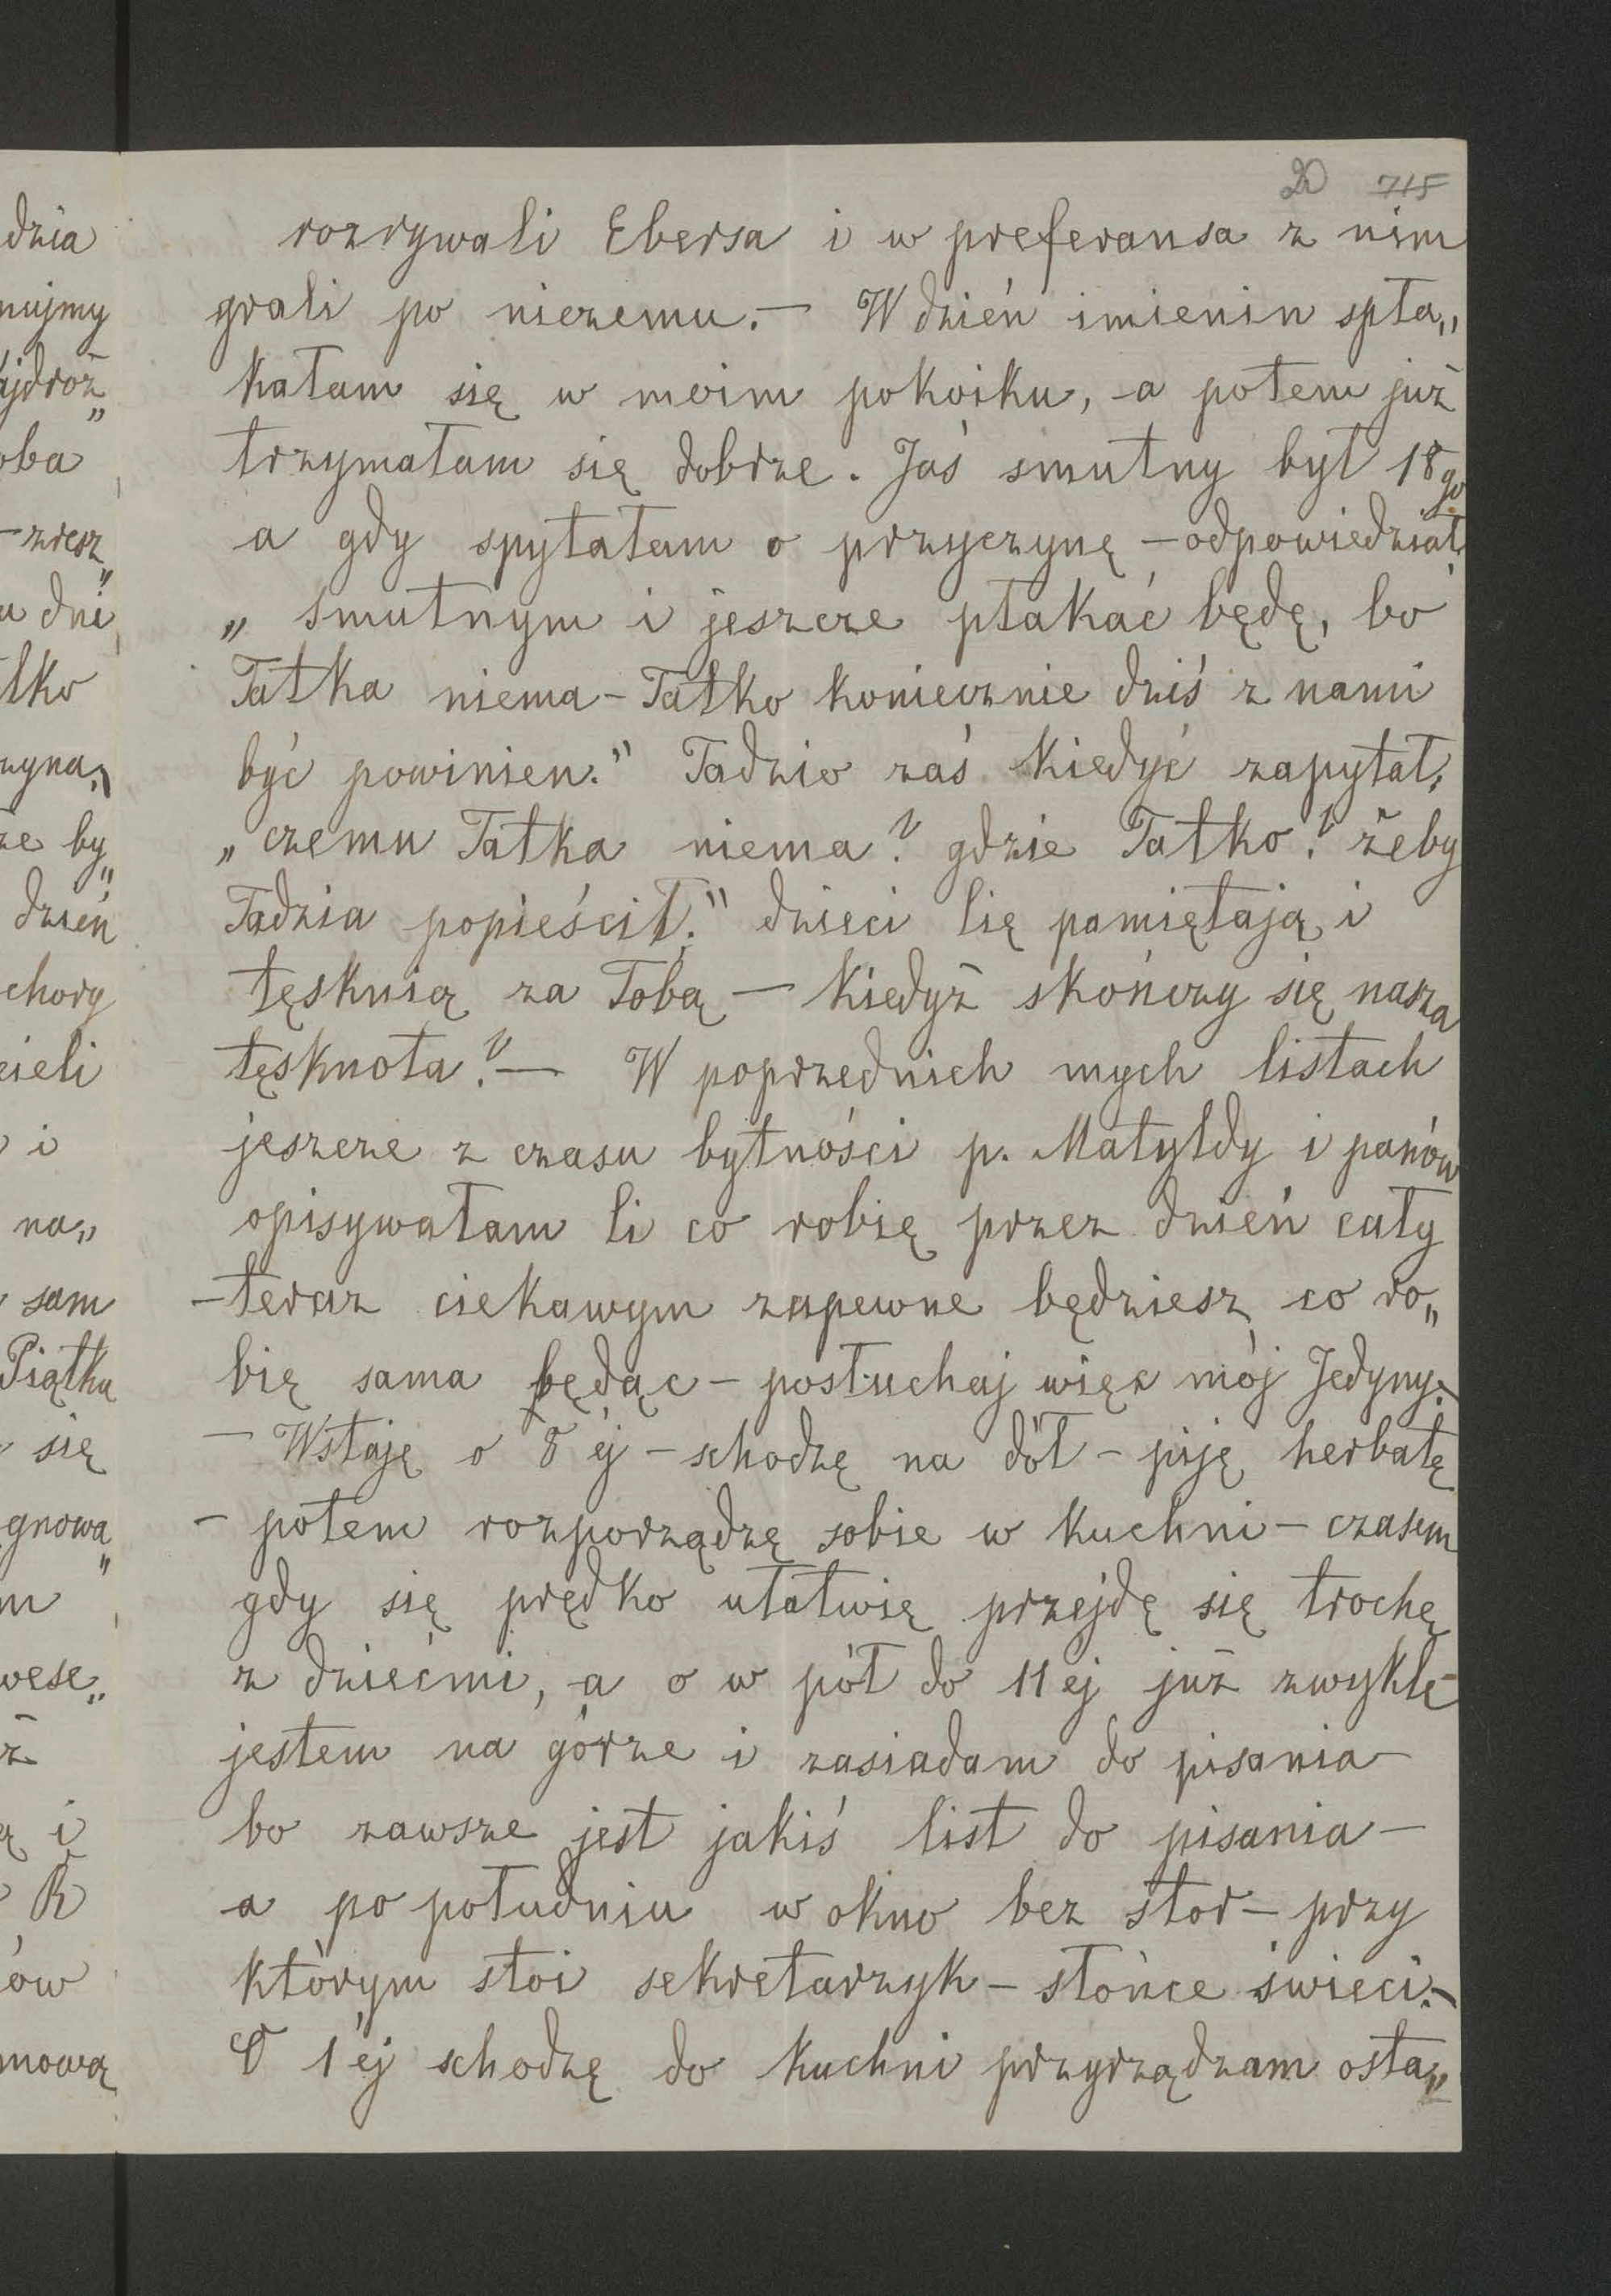 20 715
rozrywali Ebersa i w preferansa z nim
grali po niczemu. — W dzień imienin spła„
kałam się w moim pokoiku, a potem już
trzymałam się dobrze. Jaś smutny był 18go
a gdy spytałam o przyczynę — odpowiedział:
„smutnym i jeszcze płakać będę, bo
Tatka niema — Tatko koniecznie dziś z nami
być powinien." Tadzio zaś kiedyś zapytał:
„czemu Tatka niema? gdzie Tatko? żeby
Tadzia popieścił." dzieci Cię pamiętają i
tęsknią za Tobą — kiedyż skończy się nasza
tęsknota? — W poprzednich mych listach
jeszcze z czasu bytności p. Matyldy i panów
opisywałam Ci co robię przez dzień cały
— teraz ciekawym zapewne będziesz, co ro„
bię sama będąc — posłuchaj więc mój Jedyny. —
— Wstaję o 8 ej — schodzę na dół — piję herbatę
— potem rozporządzę sobie w kuchni — czasem
gdy się prędko ułatwię przejdę się trochę
z dziećmi, a o w pół do 11 ej już zwykle
jestem na górze i zasiadam do pisania —
bo zawsze jest jakiś list do pisania —
a po południu w okno bez stor — przy
którym stoi sekretarzyk — słońce świeci. —
O 1 ej schodzę do kuchni przyrządzam osta„
dzia
nujmy
ajdroż„
oba
— zresz„
u dni
tko
zyna. —
że by„
dzień
chory
cieli
i
na„
sam
Piątku
się
gnowa„
m
wese„
ż
ą i
R
ów
mową